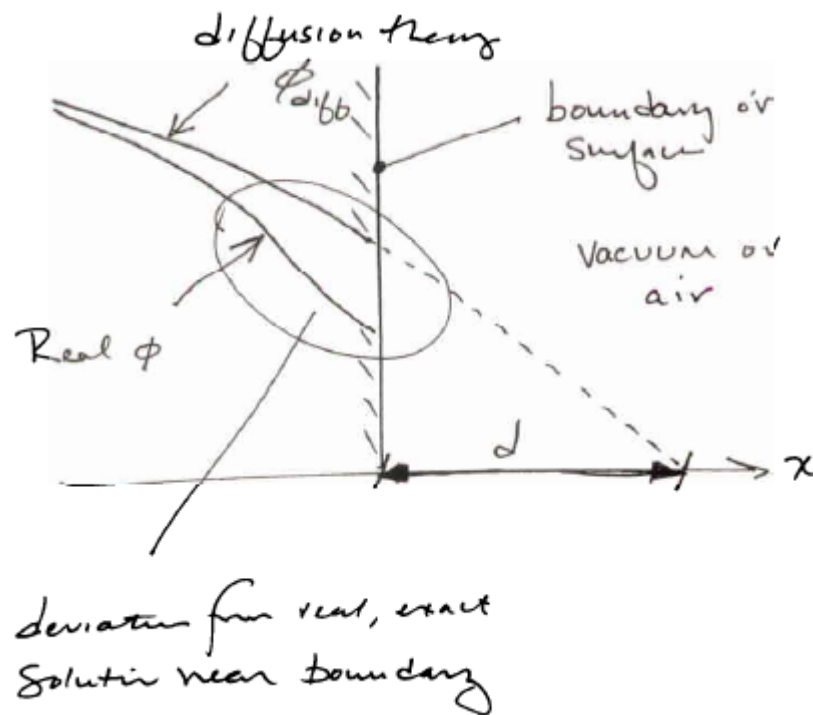 diffusion theory
ϕdiff
boundary or
surface
vacuum or
air
Real ϕ
d
x
deviation from real, exact
solution near boundary